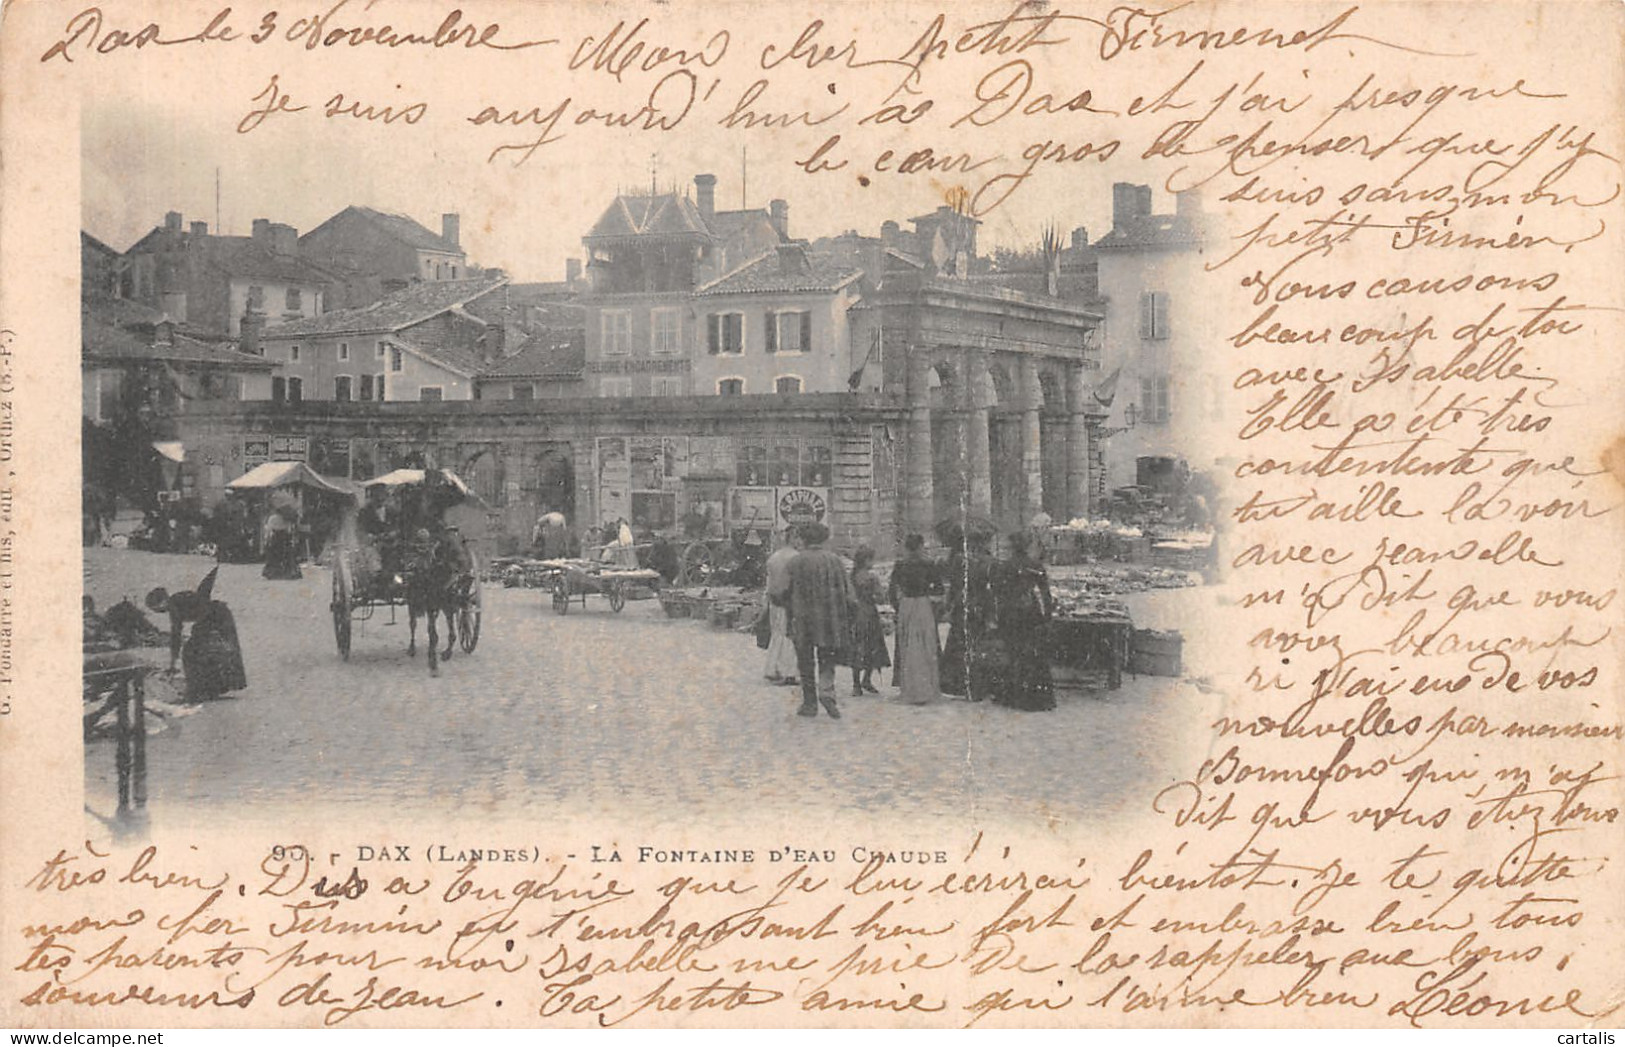 Dax le 3 Novembre Mon cher petit Firmenet
Je suis aujourd'hui à Dax et j'ai presque
le cœur gros de penser que j'y
suis sans mon
petit Firmin.
Nous causons
beaucoup de toi
avec Isabelle.
Elle a été très
contentente que
tu aille la voir
avec Jean elle
m'a dit que vous
avez beaucoup
ri j'ai eu de vos
nouvelles par monsieur
Bonnefon qui m'a
dit que vous étiez tous
90. - DAX (LANDES). - LA FONTAINE D'EAU CHAUDE
très bien. Dis a Eugénie que je lui écrirai bientôt. Je te quitte
mon cher Firmin en t'embrassant bien fort et embrasse bien tous
tes parents pour moi Isabelle me prie de la rappeler aux bons
souvenirs de Jean. Ta petite amie qui t'aime bien Léonie
G. Pondarré et fils, édit., Orthez (B.-P.)
RELIURE-ENCADREMENTS
cartalis